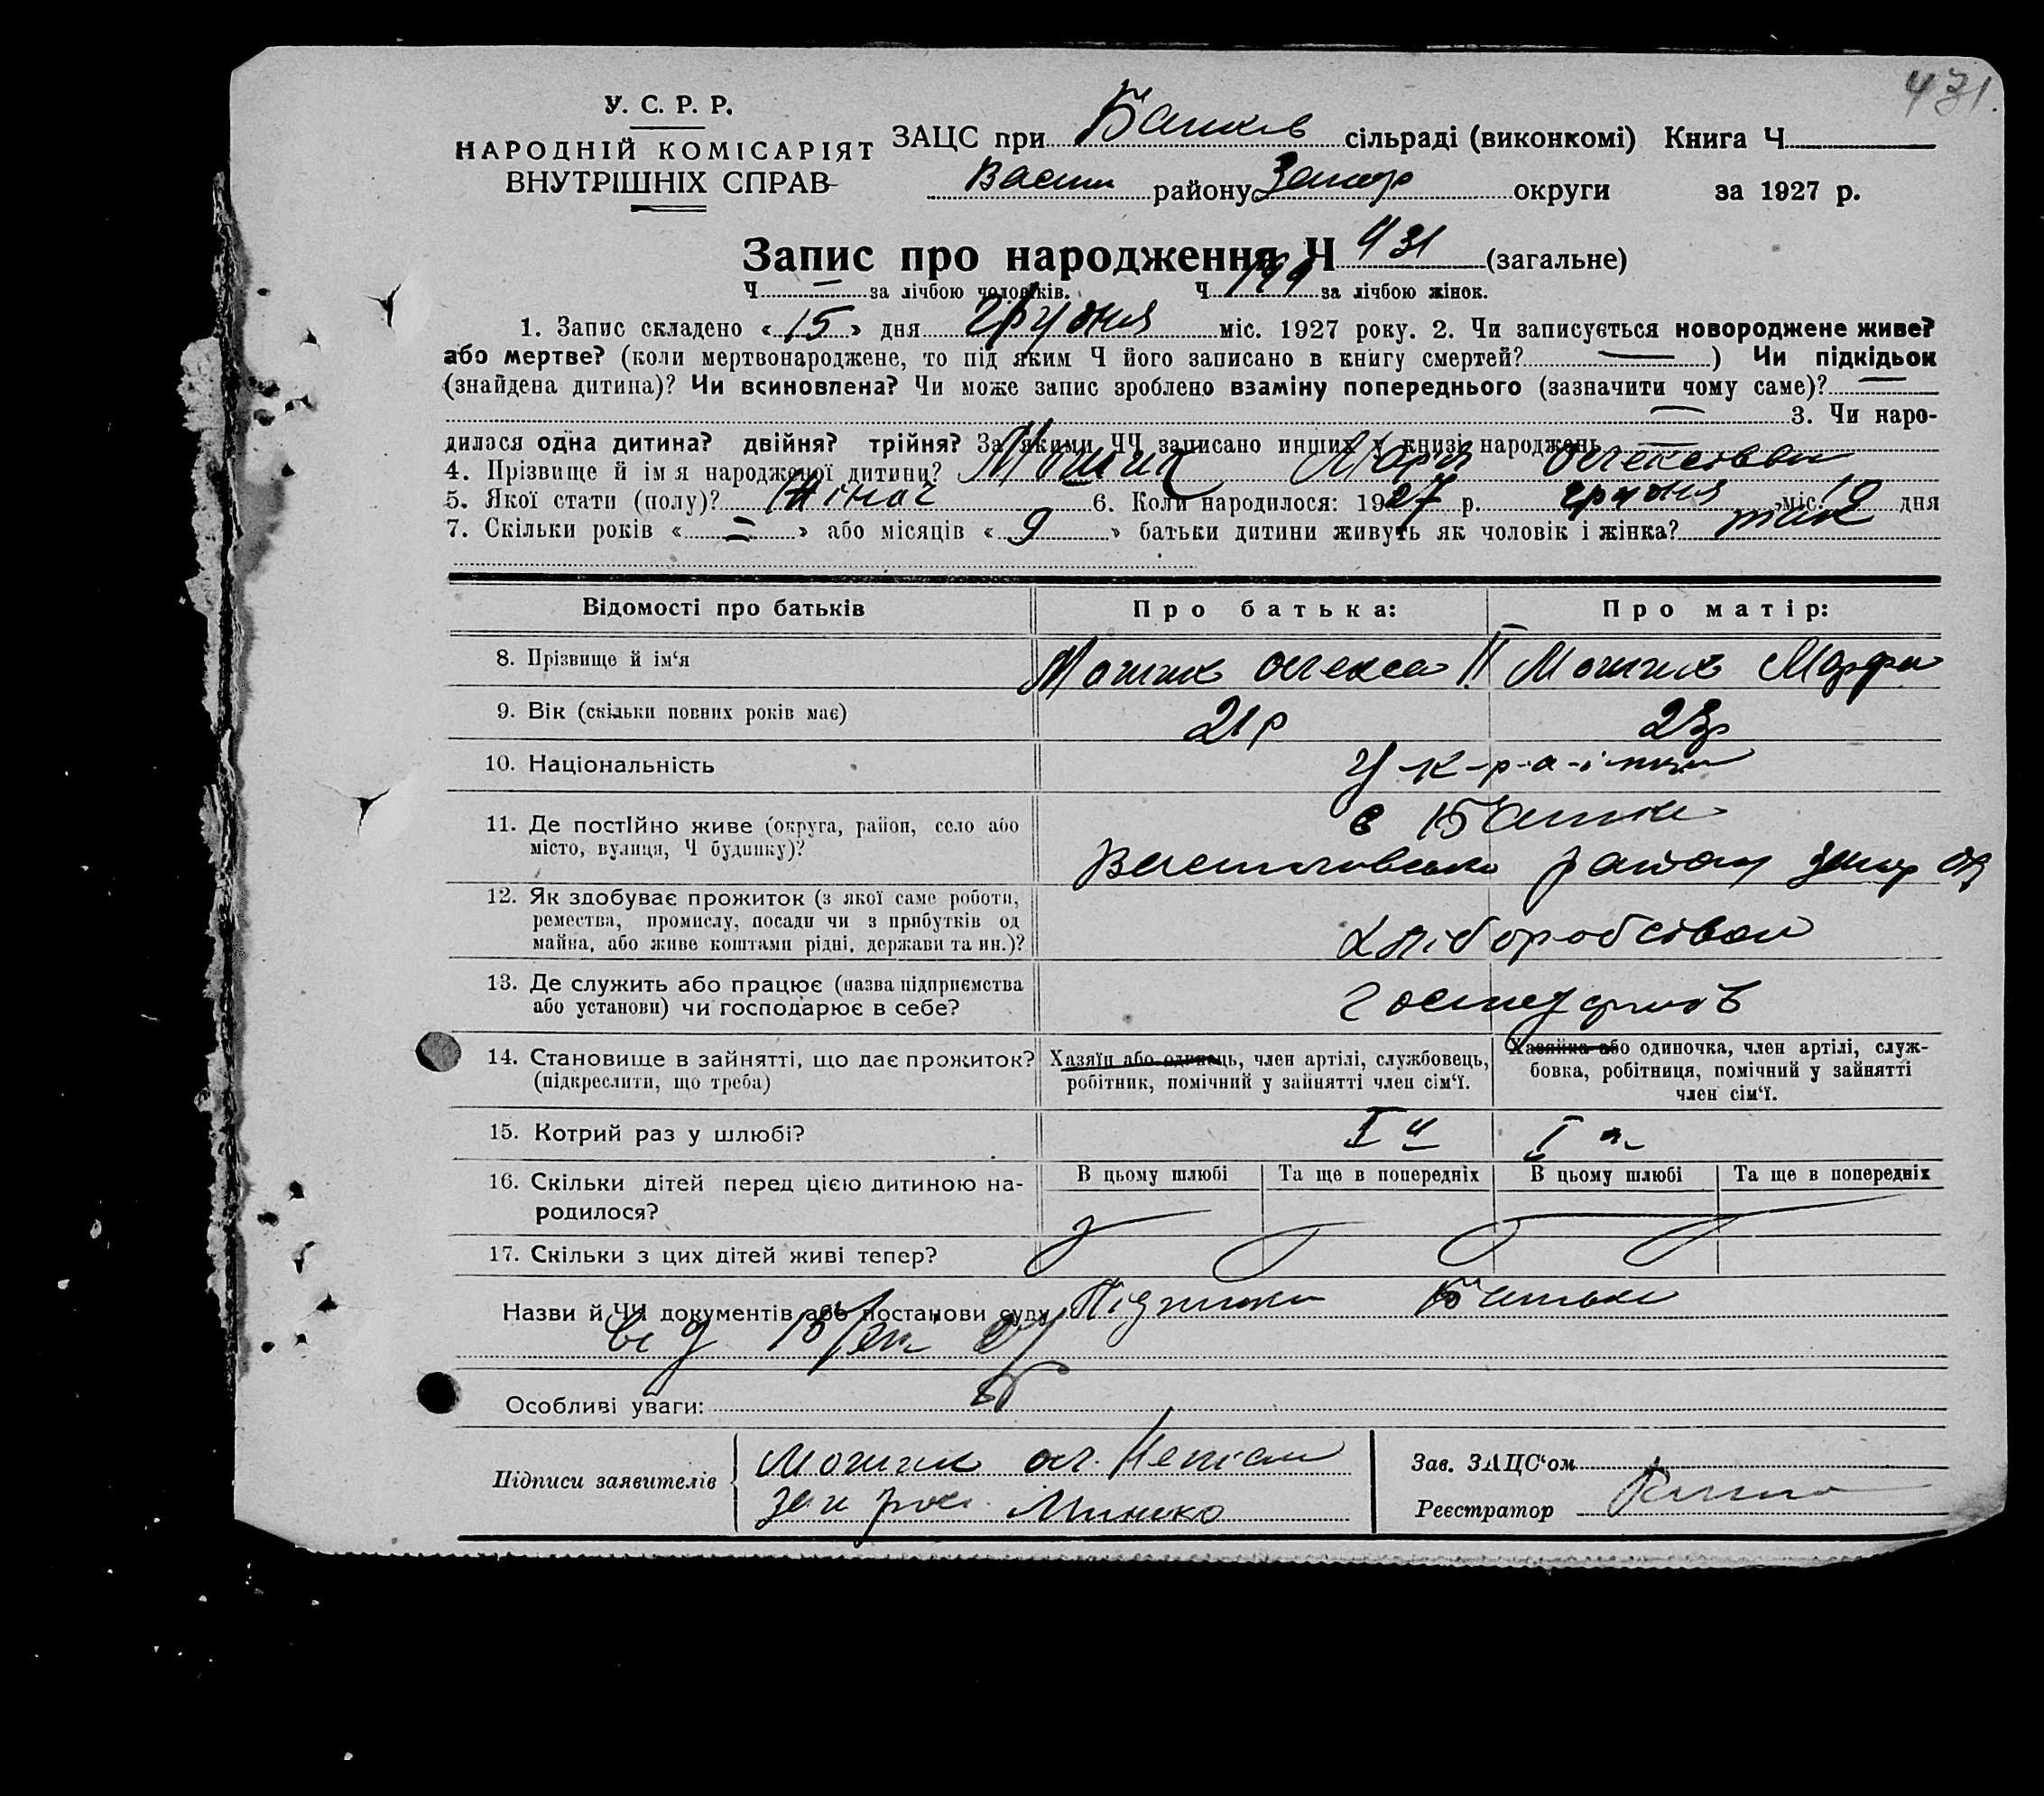 431.
У. С. Р. Р.
НАРОДНІЙ КОМІСАРІЯТ
ВНУТРІШНІХ СПРАВ
ЗАЦС при сільраді (виконкомі) Книга Ч
Васил району Запор округи за 1927 р.
Запис про народження Ч 431 (загальне)
Ч — за лічбою чоловіків. Ч за лічбою жінок.
1. Запис складено « 15 » дня грудня міс. 1927 року. 2. Чи записується новороджене живе?
або мертве? (коли мертвонароджене, то під яким Ч його записано в книгу смертей? — ) Чи підкідьок
(знайдена дитина)? Чи всиновлена? Чи може запис зроблено взаміну попереднього (зазначити чому саме)? —
— 3. Чи наро-
дилося одна дитина? двійня? трійня? За якими ЧЧ записано инших у книзі народжень —
4. Прізвище й ім я народженої дитини? Мошик Марія Олексієвна
5. Якої стати (полу)? Жіноч 6. Коли народилося: 1927 р. грудня міс. дня
7. Скільки років « — » або місяців « 9 » батьки дитини живуть як чоловік і жінка? так
Відомості про батьків Про батька: Про матір:
8. Прізвище й ім‘я Мошик Олекса Мошик Марфа
9. Вік (скільки повних років має) 21 р 23 р
10. Національність У-к-р-а-ї-нци
11. Де постійно живе (округа, район, село або
місто, вулиця, Ч будинку)?
с. району Запор ок
12. Як здобуває прожиток (з якої саме роботи,
ремества, промислу, посади чи з прибутків од
майна, або живе коштами рідні, держави та ин.)?
Хліборобством
13. Де служить або працює (назва підприємства
або установи) чи господарює в себе?
14. Становище в зайнятті, що дає прожиток?
(підкреслити, що треба)
Хазяїн або одинець, член артілі, службовець,
робітник, помічний у зайнятті член сім‘ї.
Хазяйка або одиночка, член артілі, служ-
бовка, робітниця, помічний у зайнятті
член сім‘ї.
15. Котрий раз у шлюбі? I й I а
16. Скільки дітей перед цією дитиною на-
родилося?
В цьому шлюбі Та ще в попередніх В цьому шлюбі Та ще в попередніх
17. Скільки з цих дітей живі тепер?
Назви й ЧЧ документів або постанови суду
Особливі уваги:
Підписи заявителів Мошик ол.
Зав. ЗАЦС‘ом
Реєстратор